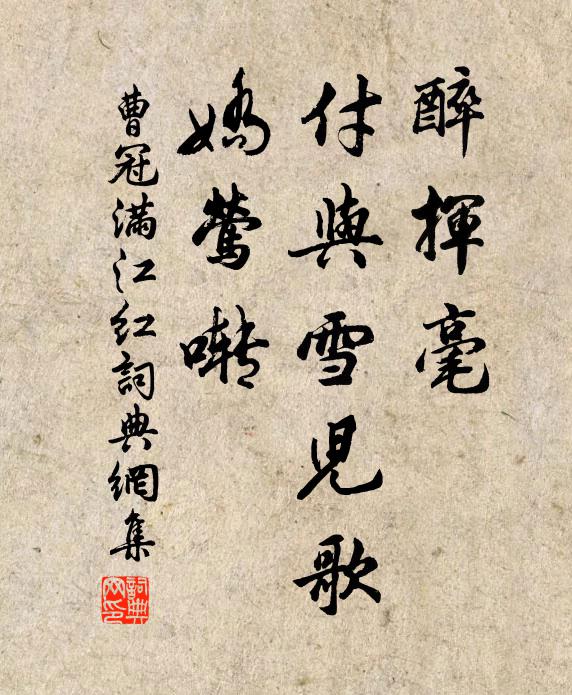 醉揮毫
付與雪兒歌
嬌鶯囀
曹冠滿江紅詞典網集
詞典網印